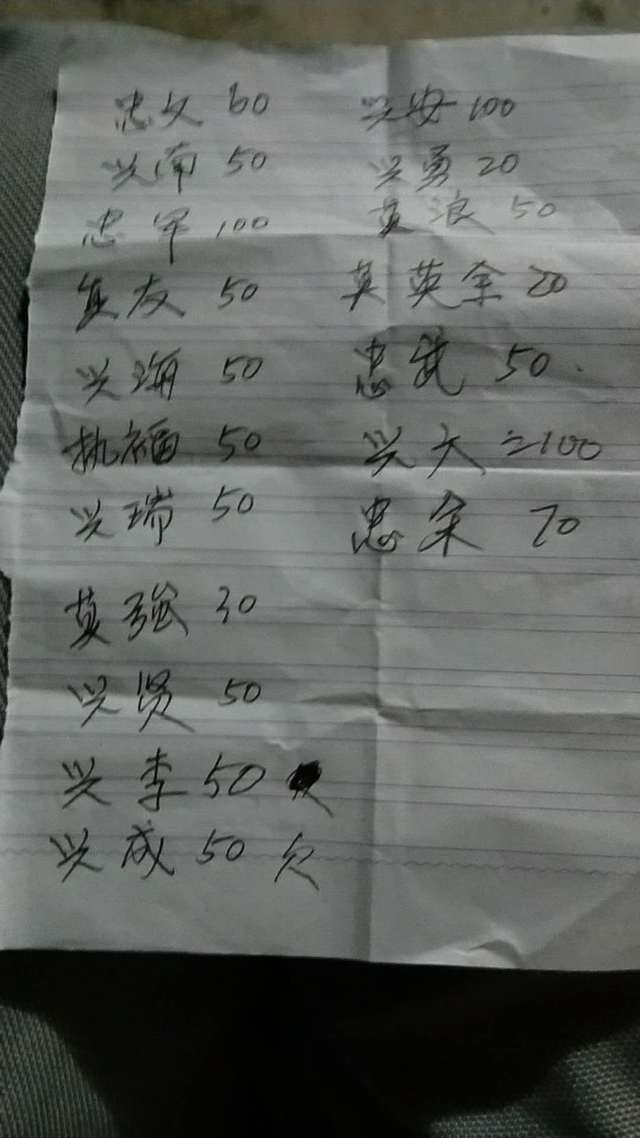 忠文 60
兴南 50
忠军 100
友 50
兴海 50
执福 50
兴瑞 50
莫强 30
兴贤 50
兴李 50
兴成 50 欠
兴安 100
兴勇 20
莫浪 50
英余 20
忠武 50
兴大 100
忠余 70